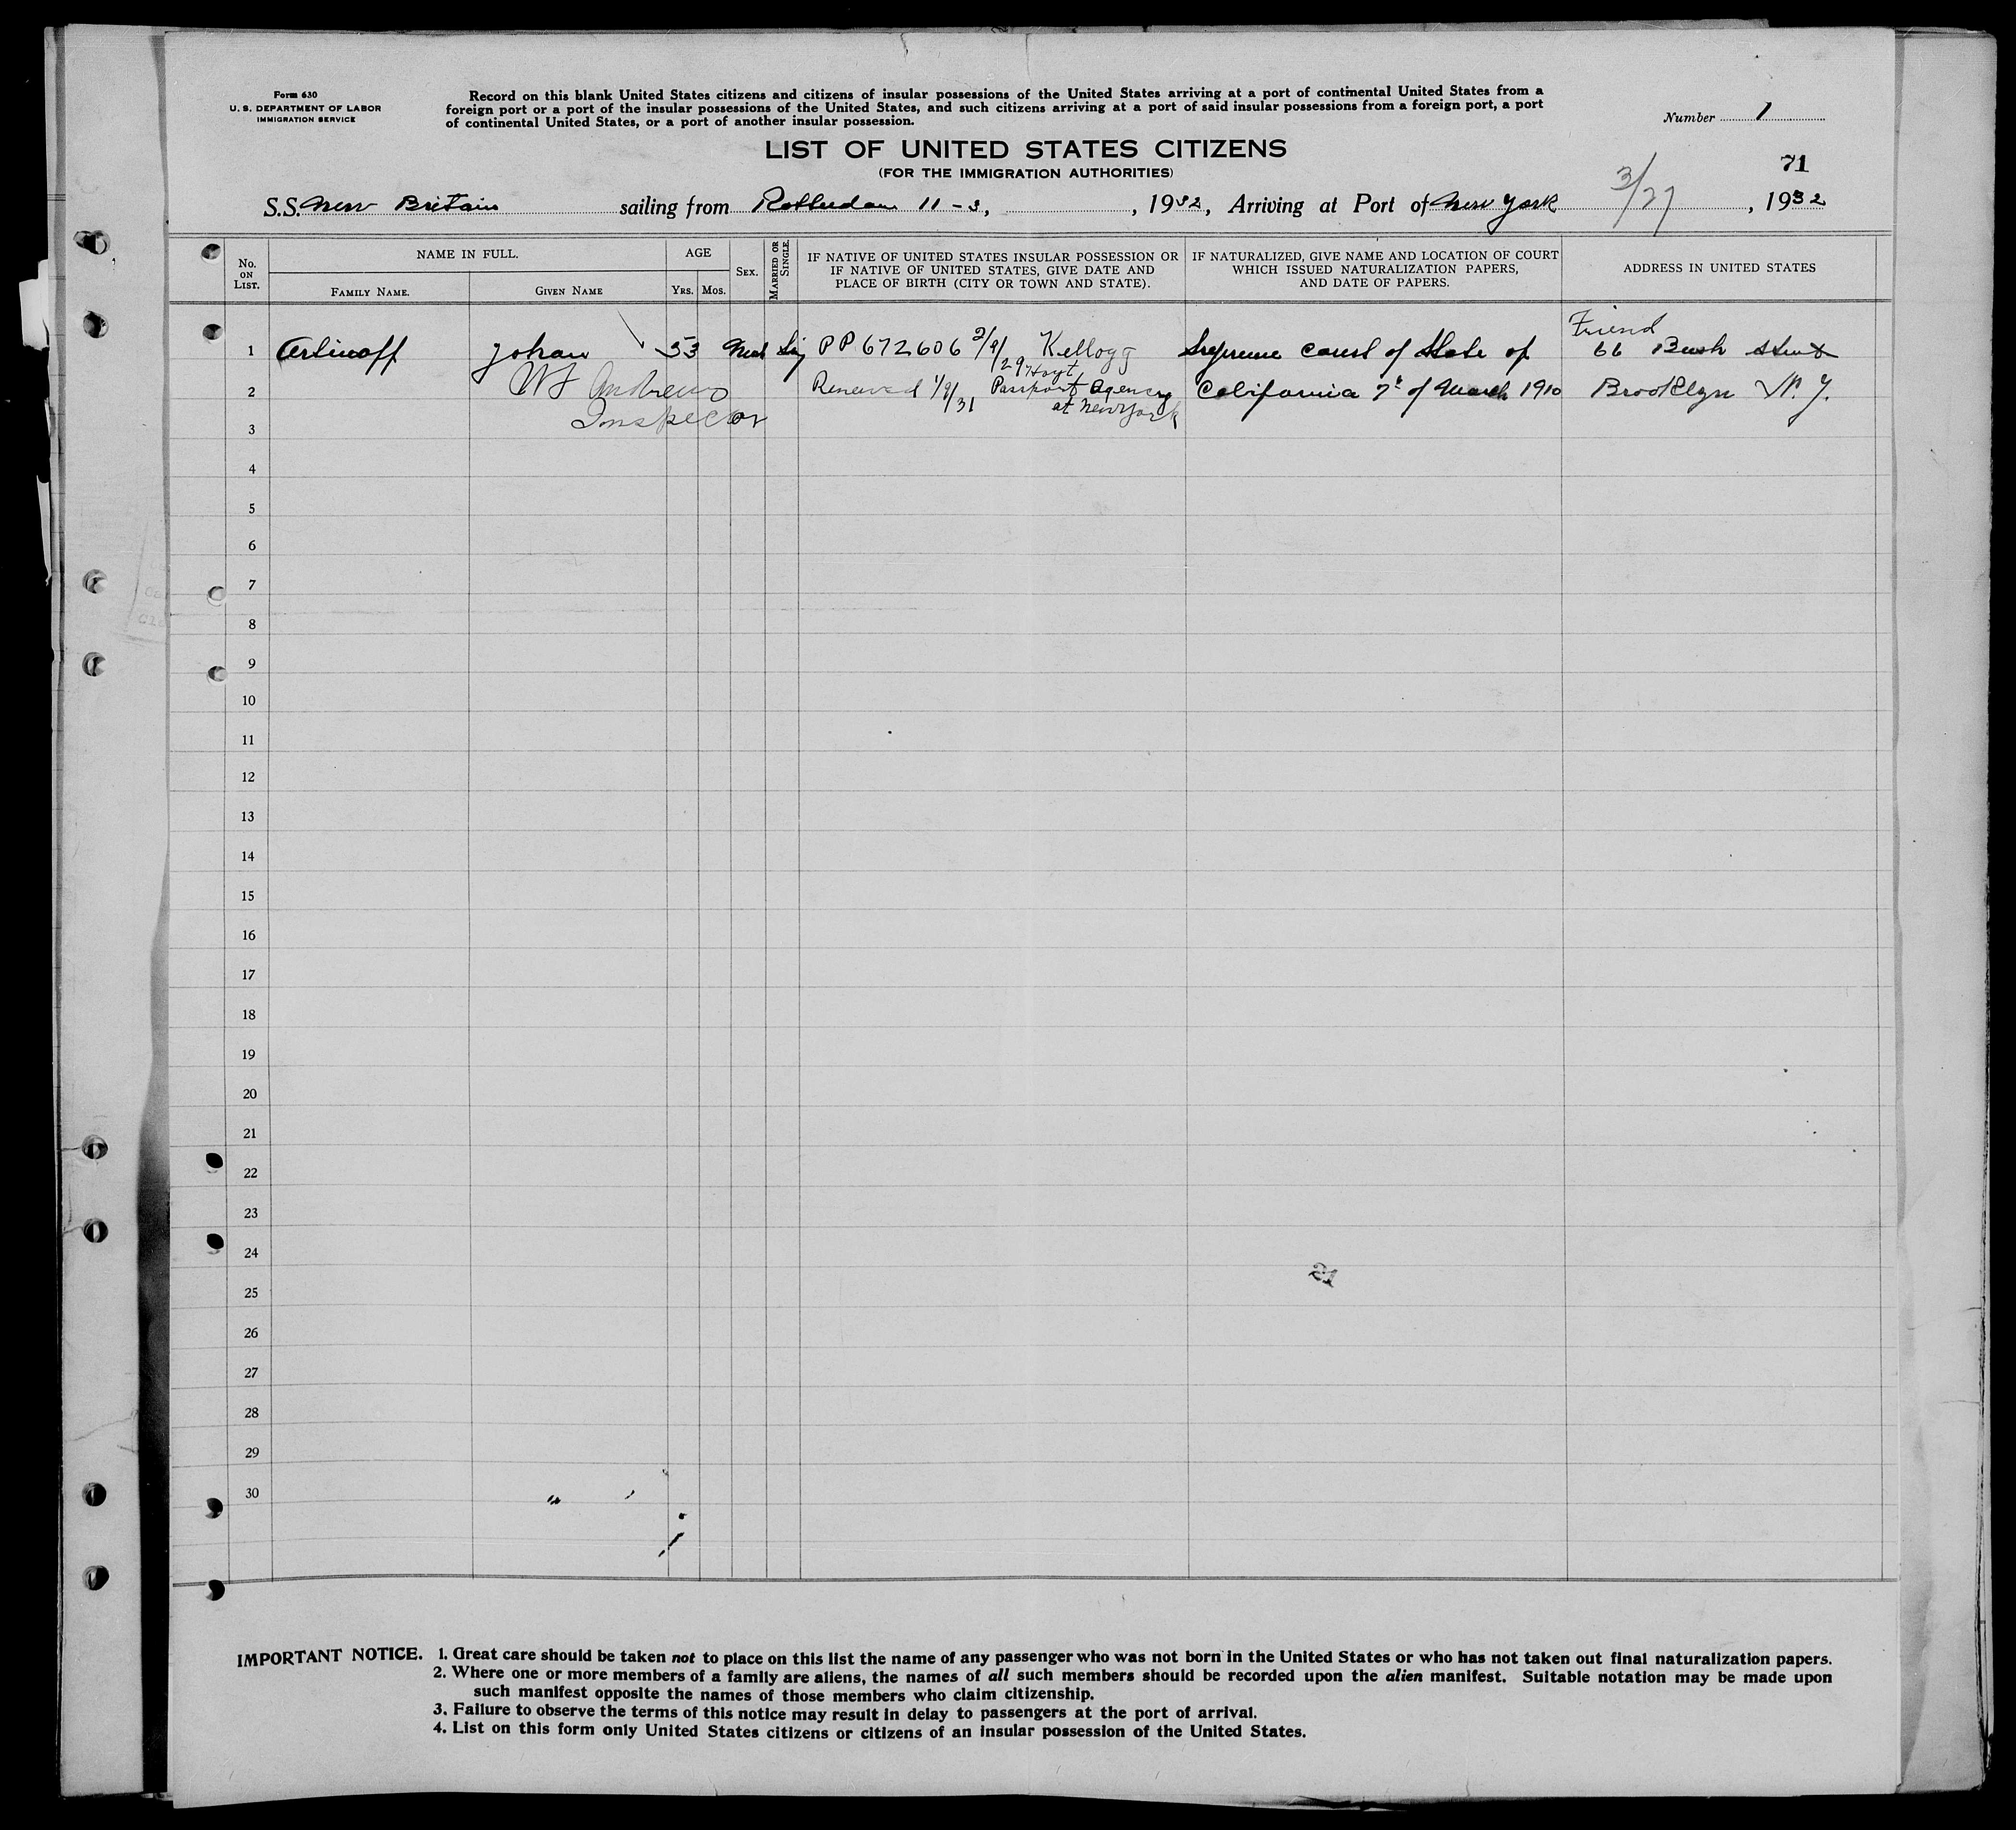 Form 630
U. S. DEPARTMENT OF LABOR
IMMIGRATION SERVICE
Record on this blank United States citizens and citizens of insular possessions of the United States arriving at a port of continental United States from a
foreign port or a port of the insular possessions of the United States, and such citizens arriving at a port of said insular possessions from a foreign port, a port
of continental United States, or a port of another insular possession.
Number 1
LIST OF UNITED STATES CITIZENS
(FOR THE IMMIGRATION AUTHORITIES)
71
S.S. New Britain sailing from Rotterdam 11-3, , 1932, Arriving at Port of New York 3/27, 1932
No. ON LIST.
NAME IN FULL.
FAMILY NAME.
GIVEN NAME
AGE
YRS.
MOS.
SEX.
MARRIED OR SINGLE.
IF NATIVE OF UNITED STATES INSULAR POSSESSION OR
IF NATIVE OF UNITED STATES, GIVE DATE AND
PLACE OF BIRTH (CITY OR TOWN AND STATE).
IF NATURALIZED, GIVE NAME AND LOCATION OF COURT
WHICH ISSUED NATURALIZATION PAPERS,
AND DATE OF PAPERS.
ADDRESS IN UNITED STATES
Friend
1 Johan 53 Sig PP 672606 2/9/29 Kellogg Supreme Court of State of 66 Bush Street
2 W Andrews Renewed 1/9/31 Hoyt Passport Agency at New York California 7 of March 1910 Brooklyn N. Y.
Inspector
3
4
5
6
7
8
9
10
11
12
13
14
15
16
17
18
19
20
21
22
23
24
25
26
27
28
29
30
IMPORTANT NOTICE. 1. Great care should be taken not to place on this list the name of any passenger who was not born in the United States or who has not taken out final naturalization papers.
2. Where one or more members of a family are aliens, the names of all such members should be recorded upon the alien manifest. Suitable notation may be made upon
such manifest opposite the names of those members who claim citizenship.
3. Failure to observe the terms of this notice may result in delay to passengers at the port of arrival.
4. List on this form only United States citizens or citizens of an insular possession of the United States.